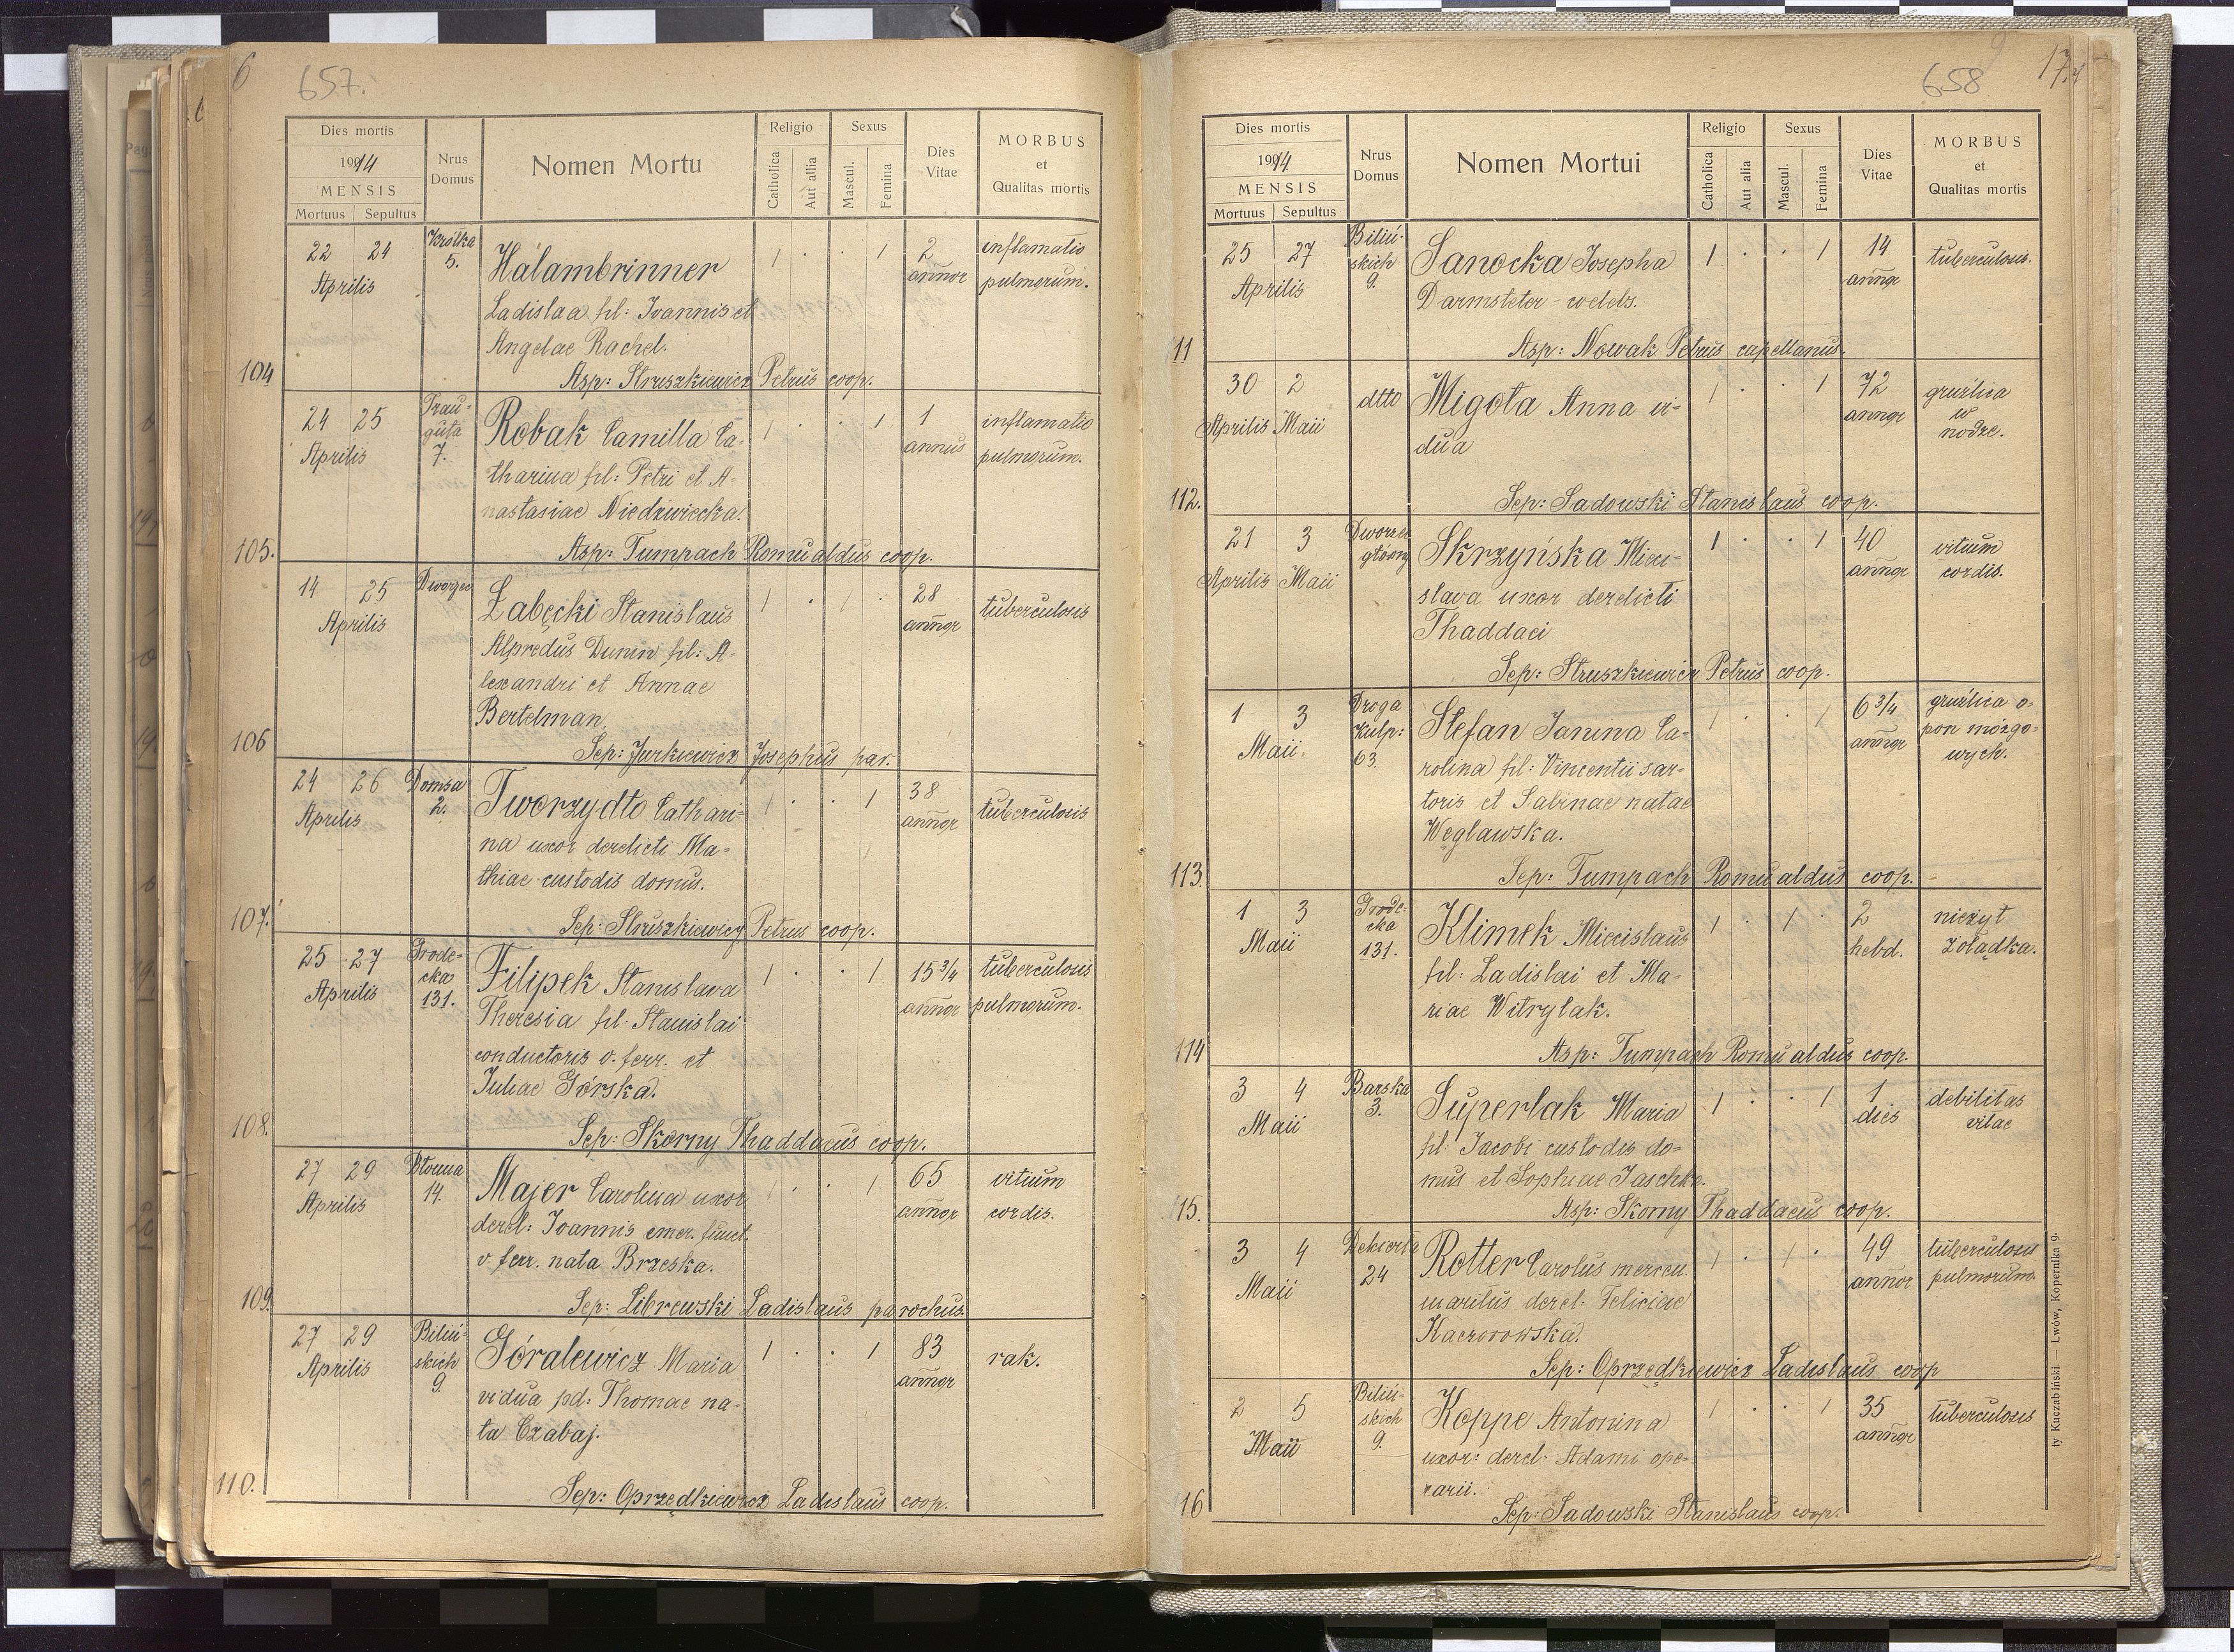 6
657.
Dies mortis
1914
MENSIS
Mortuus Sepultus
Nrus Domus
Nomen Mortu
Religio
Catholica
Aut alia
Sexus
Mascul.
Femina
Dies Vitae
MORBUS
et
Qualitas mortis
22 24 Krótka 5. Halambrinner 1 · · 1 2 inflamatio
Aprilis annor pulmorum.
Ladislaa fil: Joannis et
Angelae Rachel.
104 Asp: Struszkiewicz Petrus coop.
24 25 Trau-
guta Robak Camilla Ca- 1 · · 1 1 inflamatio
Aprilis 7. annus pulmorum.
tharina fil: Petri et A-
nastasiae Niedźwiecka.
105. Asp: Tumpach Romualdus coop.
14 25 Dworzec Łabęcki Stanislaus 1 · 1 · 28 tuberculosis
Aprilis annor
Alfredus Dunin fil: A-
lexandri et Annae
Bertelman.
106 Sep: Jurkiewicz Josephus par.
24 26 Domsa 2. Tworzydło Cathari- 1 · · 1 38 tuberculosis
Aprilis annor
na uxor derelicti Ma-
thiae custodis domus.
107. Sep: Struszkiewicz Petrus coop.
25 27 Grode-
cka Filipek Stanislava 1 · · 1 15 3/4 tuberculosis
Aprilis 131. annor pulmorum.
Theresia fil. Stanislai
conductoris v. ferr. et
Juliae Górska.
108. Sep: Skorny Thaddaeus coop.
27 29 Błonna 14. Majer Carolina uxor 1 · · 1 65 vitium
Aprilis annor cordis.
derel: Joannis emer. funct.
v. ferr. nata Brzeska.
109. Sep: Librewski Ladislaus parochus.
27 29 Biliń-
skich Góralewicz Maria 1 · · 1 83 rak.
Aprilis 9. annor
vidua pd: Thomae na-
ta Czabaj.
110. Sep: Oprzędkiewicz Ladislaus coop.
658
17.
Dies mortis
1914
MENSIS
Mortuus Sepultus
Nrus Domus
Nomen Mortui
Religio
Catholica
Aut alia
Sexus
Mascul.
Femina
Dies Vitae
MORBUS
et
Qualitas mortis
25 27 Biliń-
skich Sanocka Josepha 1 · · 1 14 tuberculosis.
Aprilis 9. annor
Darmsteter
11 Asp: Nowak Petrus capellanus.
30 2 dtto Migota Anna vi- 1 · · 1 72 gruźlica
Aprilis Maii annor w
dua nodze.
112. Sep: Sadowski Stanislaus coop.
21 3 Dworzec
główny Skrzyńska Mieci- 1 · · 1 40 vitium
Aprilis Maii annor cordis.
slava uxor derelicti
Thaddaei
Sep: Struszkiewicz Petrus coop.
1 3 Droga
Kulp: Stefan Janina Ca- 1 · · 1 6 3/4 gruźlica o-
Maii 63. annor pon mózgo-
rolina fil: Vincentii sar- wych.
toris et Sabinae natae
Węglawska.
113. Sep: Tumpach Romualdus coop.
1 3 Grode-
cka Klimek Miecislaus 1 · 1 · 2 nieżyt
Maii 131. hebd. żołądka.
fil: Ladislai et Ma-
riae Witrylak.
114 Asp: Tumpach Romualdus coop.
3 4 Barska 3. Superlak Maria 1 · · 1 1 debilitas
Maii dies vitae
fil: Jacobi custodis do-
mus et Sophiae Jaschke.
15. Asp: Skorny Thaddaeus coop.
3 4 Dekerta 24 Rotter Carolus mercen. 1 · 1 · 49 tuberculosis
Maii annor pulmorum.
maritus derel: Feliciae
Kaczorowska.
Sep: Oprzędkiewicz Ladislaus coop
2 5 Biliń-
skich Koppe Antonina 1 · · 1 35 tuberculosis
Maii 9. annor
uxor: derel: Adami ope-
rarii.
16 Sep: Sadowski Stanislaus coop.
ty Kuczabiński — Lwów, Kopernika 9.